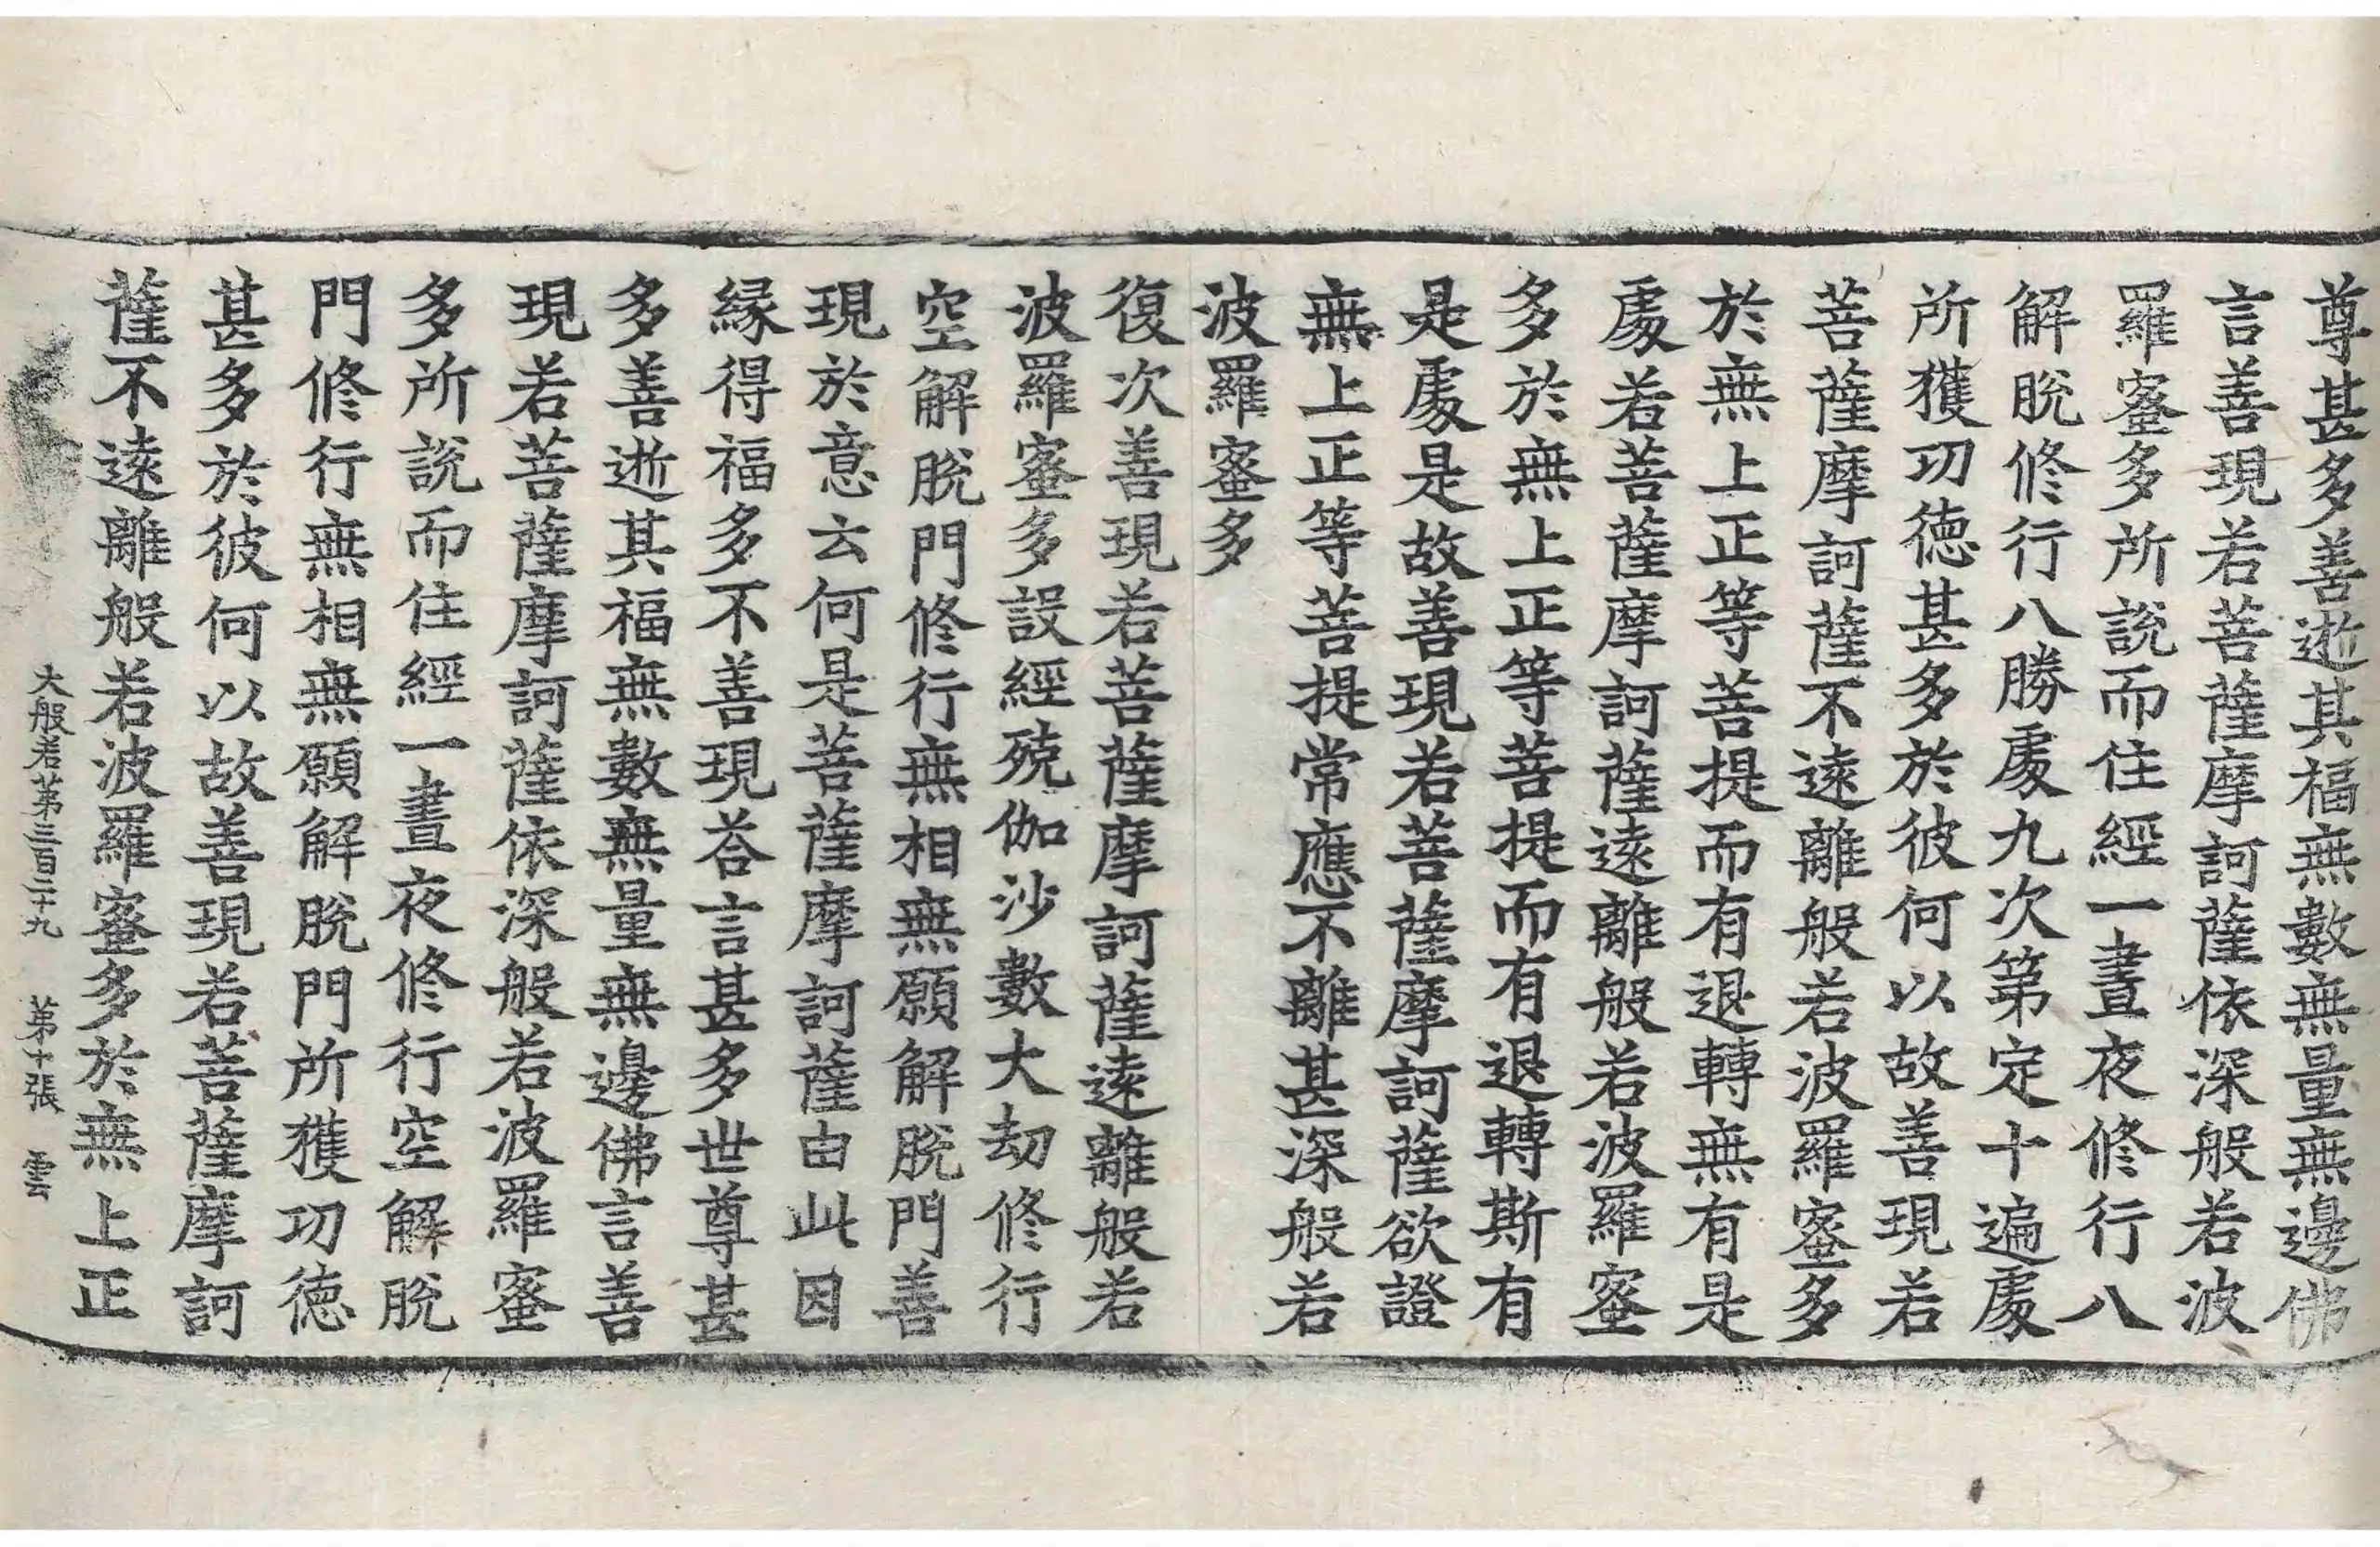 尊甚多善逝其福無數無量無邊佛
言善現若菩薩摩訶薩依深般若波
羅蜜多所說而住經一晝夜修行八
解脫修行八勝處九次第定十遍處
所獲功德甚多於彼何以故善現若
菩薩摩訶薩不遠離般若波羅蜜多
於無上正等菩提而有退轉無有是
處若菩薩摩訶薩遠離般若波羅蜜
多於無上正等菩提而有退轉斯有
是處是故善現若菩薩摩訶薩欲證
無上正等菩提常應不離甚深般若
波羅蜜多
復次善現若菩薩摩訶薩遠離般若
波羅蜜多設經殑伽沙數大劫修行
空解脫門修行無相無願解脫門善
現於意云何是菩薩摩訶薩由此因
緣得福多不善現荅言甚多世尊甚
多善逝其福無數無量無邊佛言善
現若菩薩摩訶薩依深般若波羅蜜
多所說而住經一晝夜修行空解脫
門修行無相無願解脫門所獲功德
甚多於彼何以故善現若菩薩摩訶
薩不遠離般若波羅蜜多於無上正
大般若第三百二十九 第十張 雲